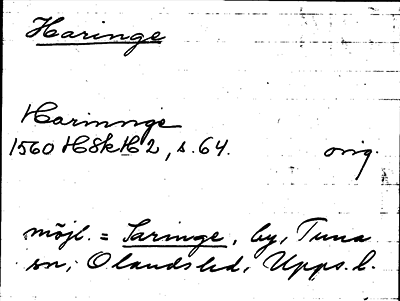 Haringe
Harinnge
1560 HSkH 2, s. 64. orig.
möjl. = Saringe, by, Tuna
sn, Olandshd, Upps. l.